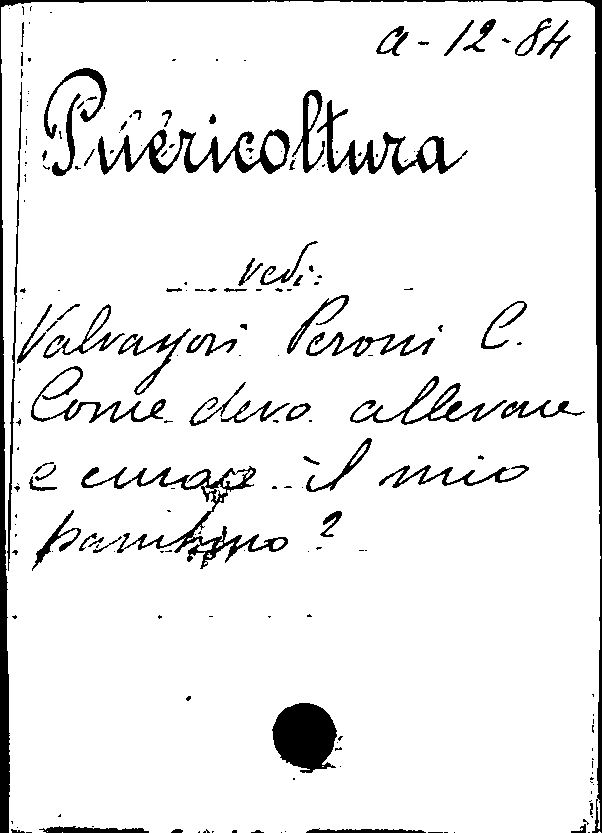 a-12-84
Puericoltura
vedi:
Valvassori Peroni C.
Come devo allevare
e curare il mio
bambino?